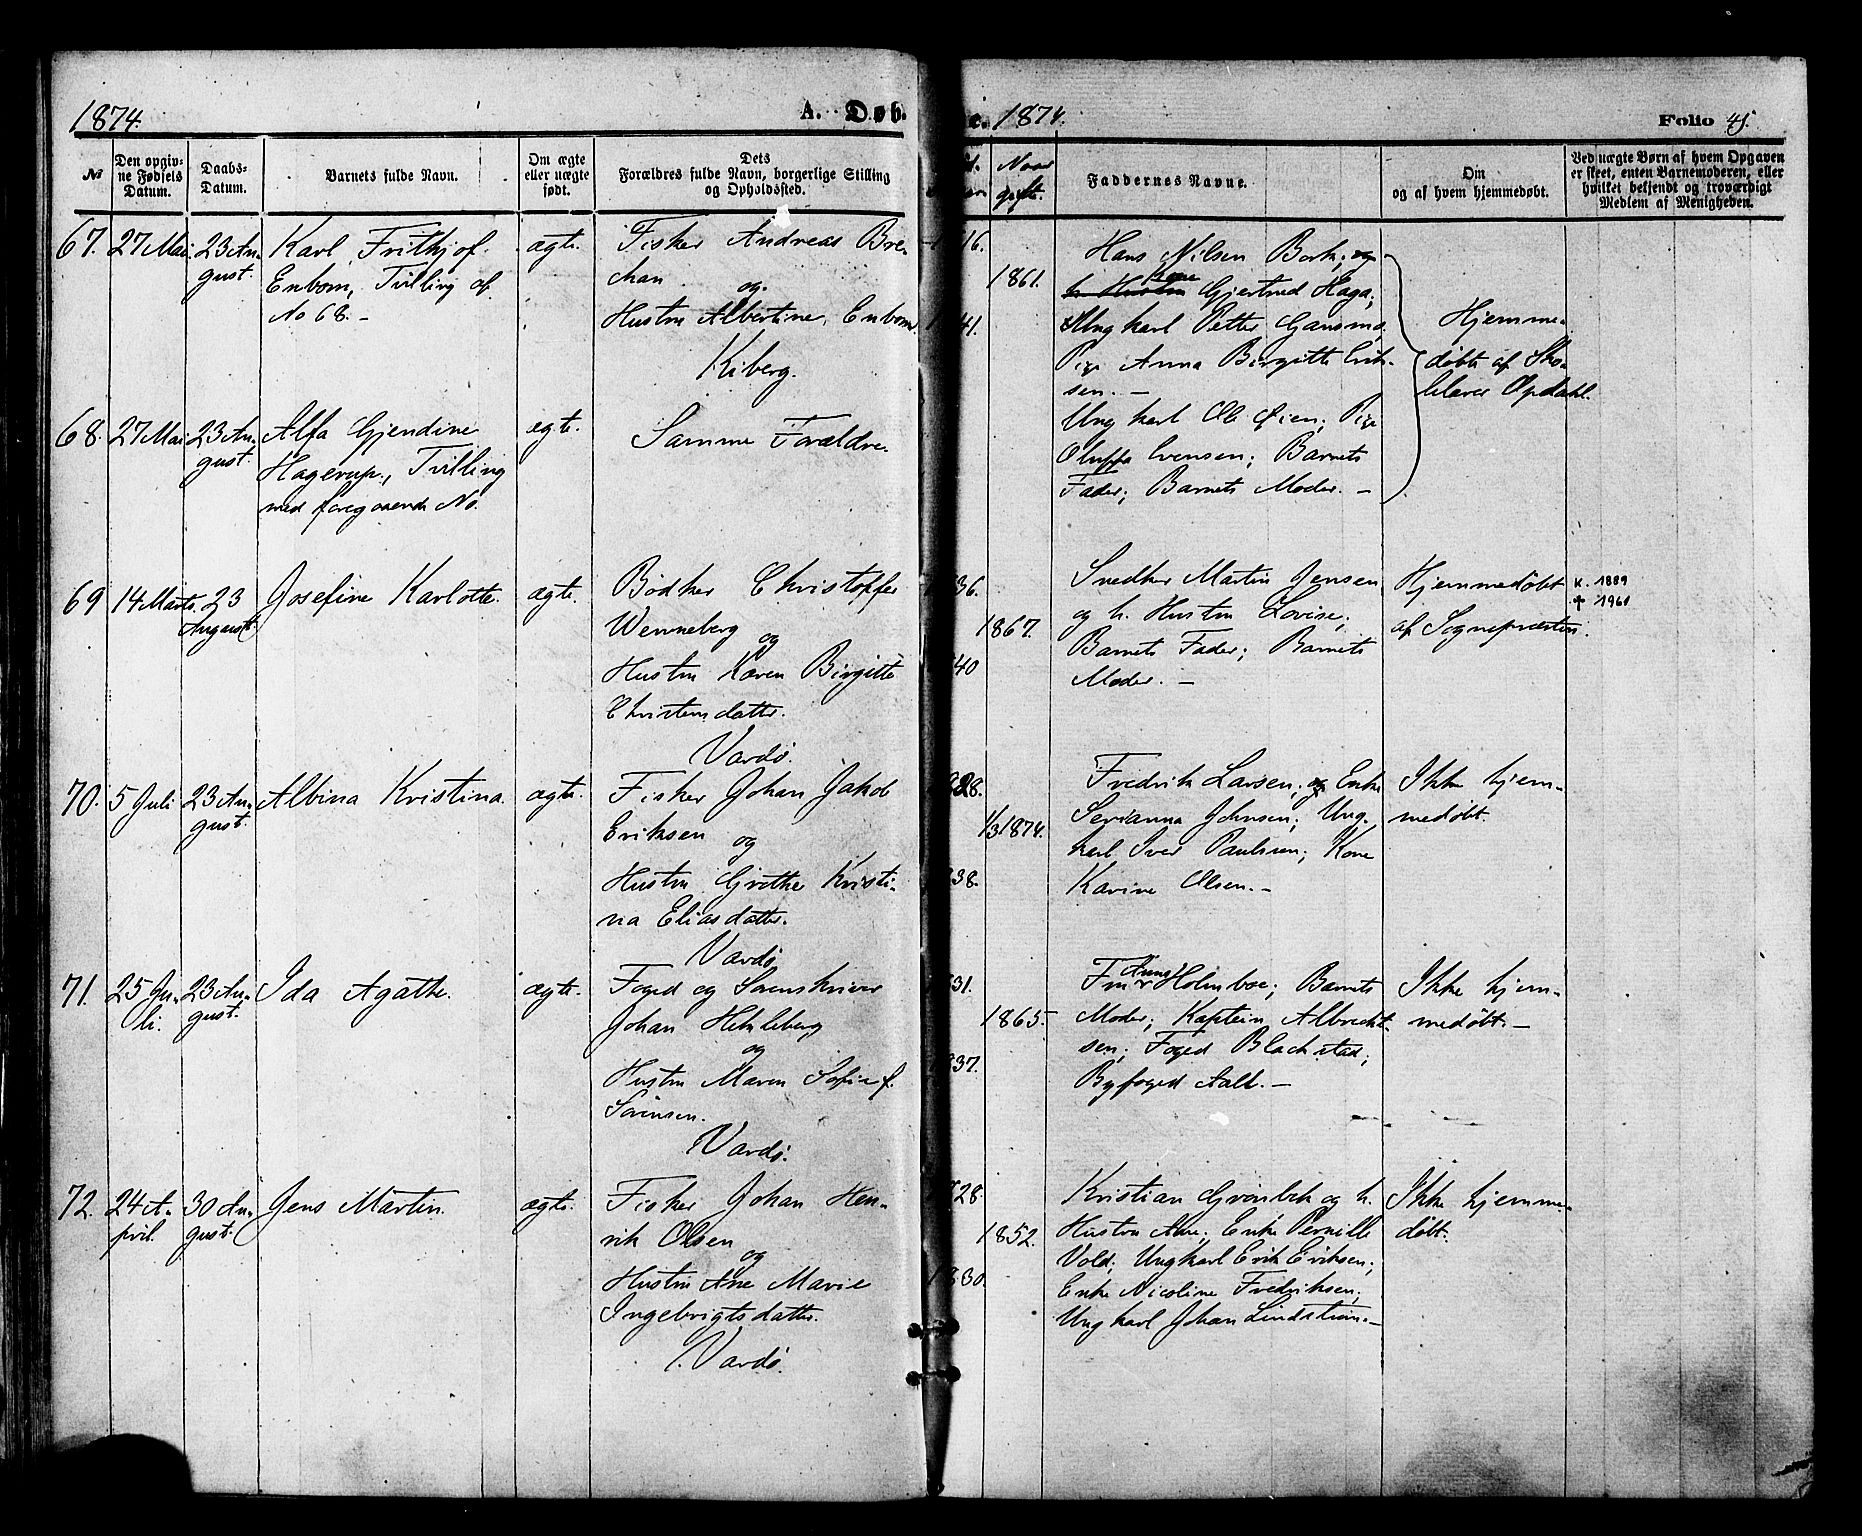 1874.
A. Døb.
№
Den opgiv-
ne Fødsels
Datum.
Daabs-
Datum.
Barnets fulde Navn.
Om ægte
eller uægte
født.
Dets
Forældres fulde Navn, borgerlige Stilling
og Opholdssted.
67.
27 Mai
23 Au-
gust.
Karl Frithjof
Enbom, Tvilling af
No 68. -
ægte.
Fisker Andreas Bre-
chan
og
Hustru Albertine Enbom.
Kiberg.
68.
27 Mai
23 Au-
gust.
Alfa Gjendine
Hagerup, Tvilling
med foregaaende No.
ægte.
Samme Forældre.
69
14 Marts.
23
August
Josefine Karlotte.
ægte.
Bødker Christoffer
Wenneberg
og
Hustru Karen Birgitte
Christensdatter.
Vardø.
70.
5 Juli
23 Au-
gust.
Albina Kristina.
ægte.
Fisker Johan Jakob
Eriksen
og
Hustru Grethe Kristi-
na Eliasdatter.
Vardø
71.
25 Ju-
li.
23 Au-
gust.
Ida Agathe.
ægte.
Foged og Sorenskriver
Johan
og
Hustru Maren Sofie f.
Sørensen.
Vardø.
72.
24 A-
pril.
30 Au-
gust.
Jens Martin.
ægte.
Fisker Johan Hen-
rik Olsen
og
Hustru Ane Marie
Ingebrigtsdatter.
Vardø.
e. 1874.
Folio 45.
Naar
gifte.
Faddernes Navne.
Om
og af hvem hjemmedøbt.
Ved uægte Børn af hvem Opgaven
er skeet, enten Barnemoderen, eller
hvilket bekjendt og troværdigt
Medlem af Menigheden.
16.
1861.
41.
Hans Nilsen Bork; og
kone
h. Hustru Gjertrud Haga;
Ungkarl Petter Gansmo.
Pige Anna Birgitte Erik-
sen. -
Ungkarl Ole Øien; Pige
Oluffa Evensen; Barnets
Fader; Barnets Moder. -
Hjemme-
døbte af Sko-
lelærer Opdahl.
36.
1867.
40
Snedker Martin Jensen
og h. Hustru Lovise;
Barnets Fader; Barnets
Moder. -
Hjemmedøbt
af Sognepresten.
K. 1889
† 1961
28.
1/3 1874.
38.
Fredrik Larsen; og Enke
Serianna Johnsen; Ung-
karl Iver Paulsen; Kone
Karine Olsen. -
Ikke hjem-
medøbt.
31.
1865.
37.
Fru Holmboe; Barnets
Moder; Kaptein Albrecht-
sen; Foged Blackstad;
Byfoged Aall. -
Ikke hjem-
medøbt. -
28.
1852.
30.
Kristian Grønbek og h.
Hustru Ane; Enke Pernille
Vold; Ungkarl Erik Eriksen;
Enke Nicoline Fredriksen;
Ungkarl Johan Lindstrøm. -
Ikke hjemme-
døbt.